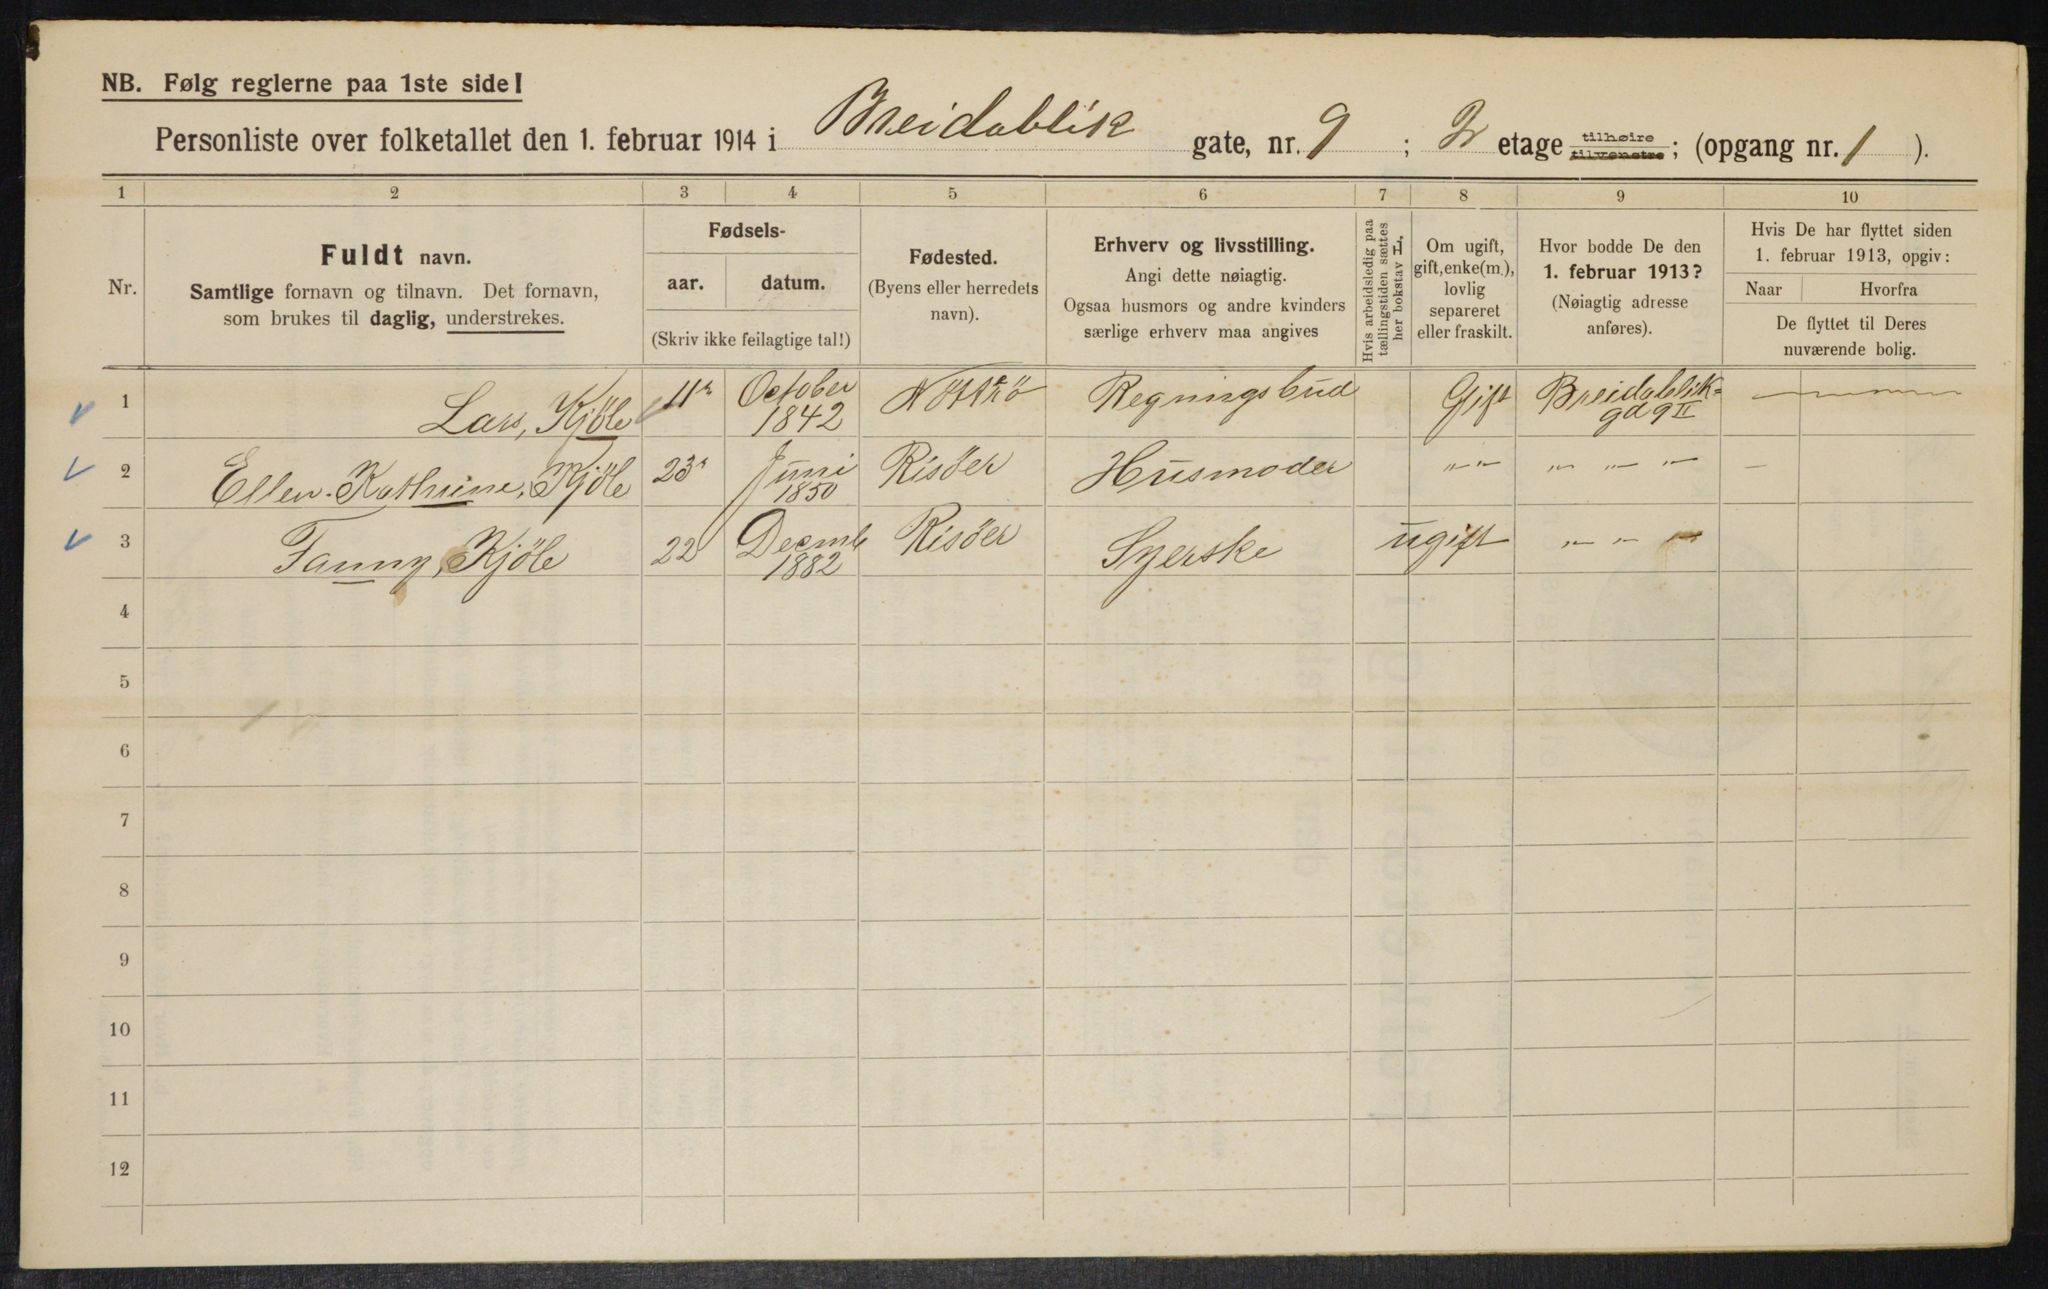 NB. Følg reglerne paa 1ste side!
Personliste over folketallet den 1. februar 1914 i Breidablik gate, nr. 9 ; 2 etage tilhøire tilvenstre; (opgang nr. 1 ).
1 2 3 4 5 6 7 8 9 10
Nr.
Fuldt navn.
Samtlige fornavn og tilnavn. Det fornavn,
som brukes til daglig, understrekes.
Fødsels-
aar. datum.
(Skriv ikke feilagtige tal!)
Fødested.
(Byens eller herredets
navn).
Erhverv og livsstilling.
Angi dette nøiagtig.
Ogsaa husmors og andre kvinders
særlige erhverv maa angives
Hvis arbeidsledig paa
tællingstiden sættes
her bokstav L.
Om ugift,
gift, enke(m.),
lovlig
separeret
eller fraskilt.
Hvor bodde De den
1. februar 1913?
(Nøiagtig adresse
anføres).
Hvis De har flyttet siden
1. februar 1913, opgiv:
Naar Hvorfra
De flyttet til Deres
nuværende bolig.
1 Lars, Kjöle 11 October 1842 Nötterö Regningsbud Gift Breidablik-
gd 9 II
2 Ellen Kathrine, Kjöle 23 Juni 1850 Risöer Husmoder " " " " " –
3 Fanny, Kjöle 22 Decmb 1882 Risöer Syerske ugift " " "
4
5
6
7
8
9
10
11
12